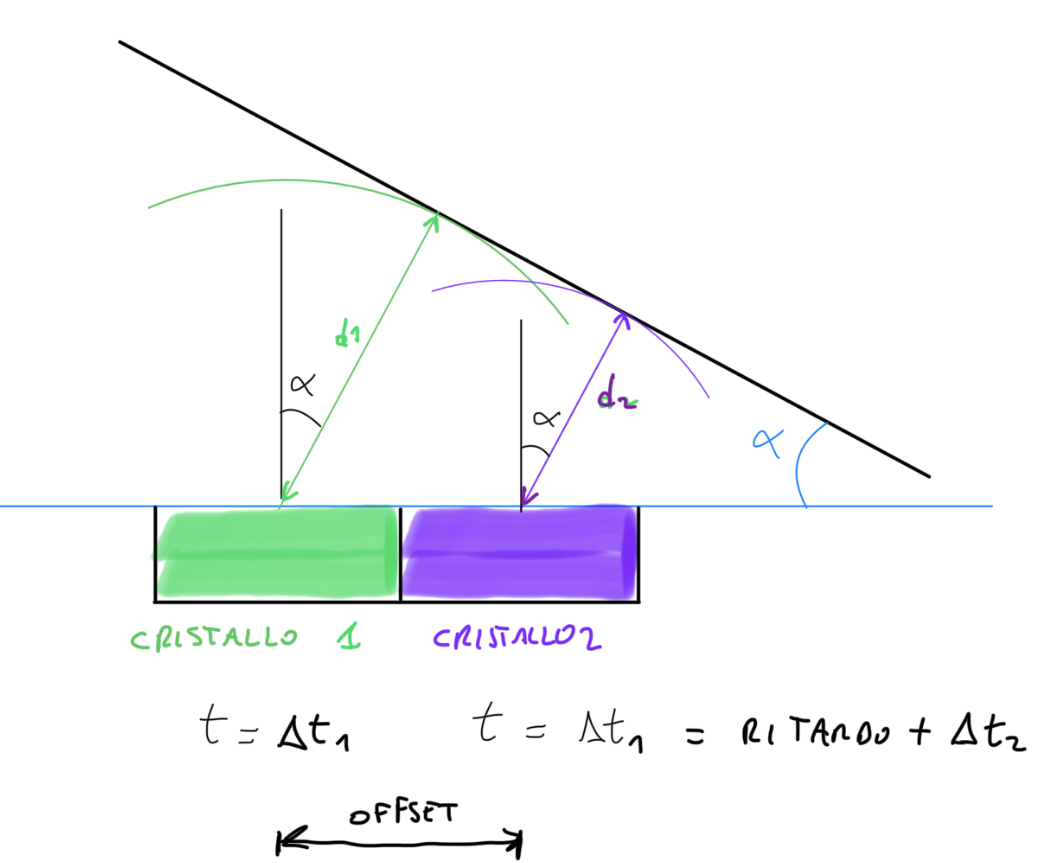 d1
α
α
d2
α
CRISTALLO 1 CRISTALLO2
t = Δt1 t = Δt1 = RITARDO + Δt2
OFFSET